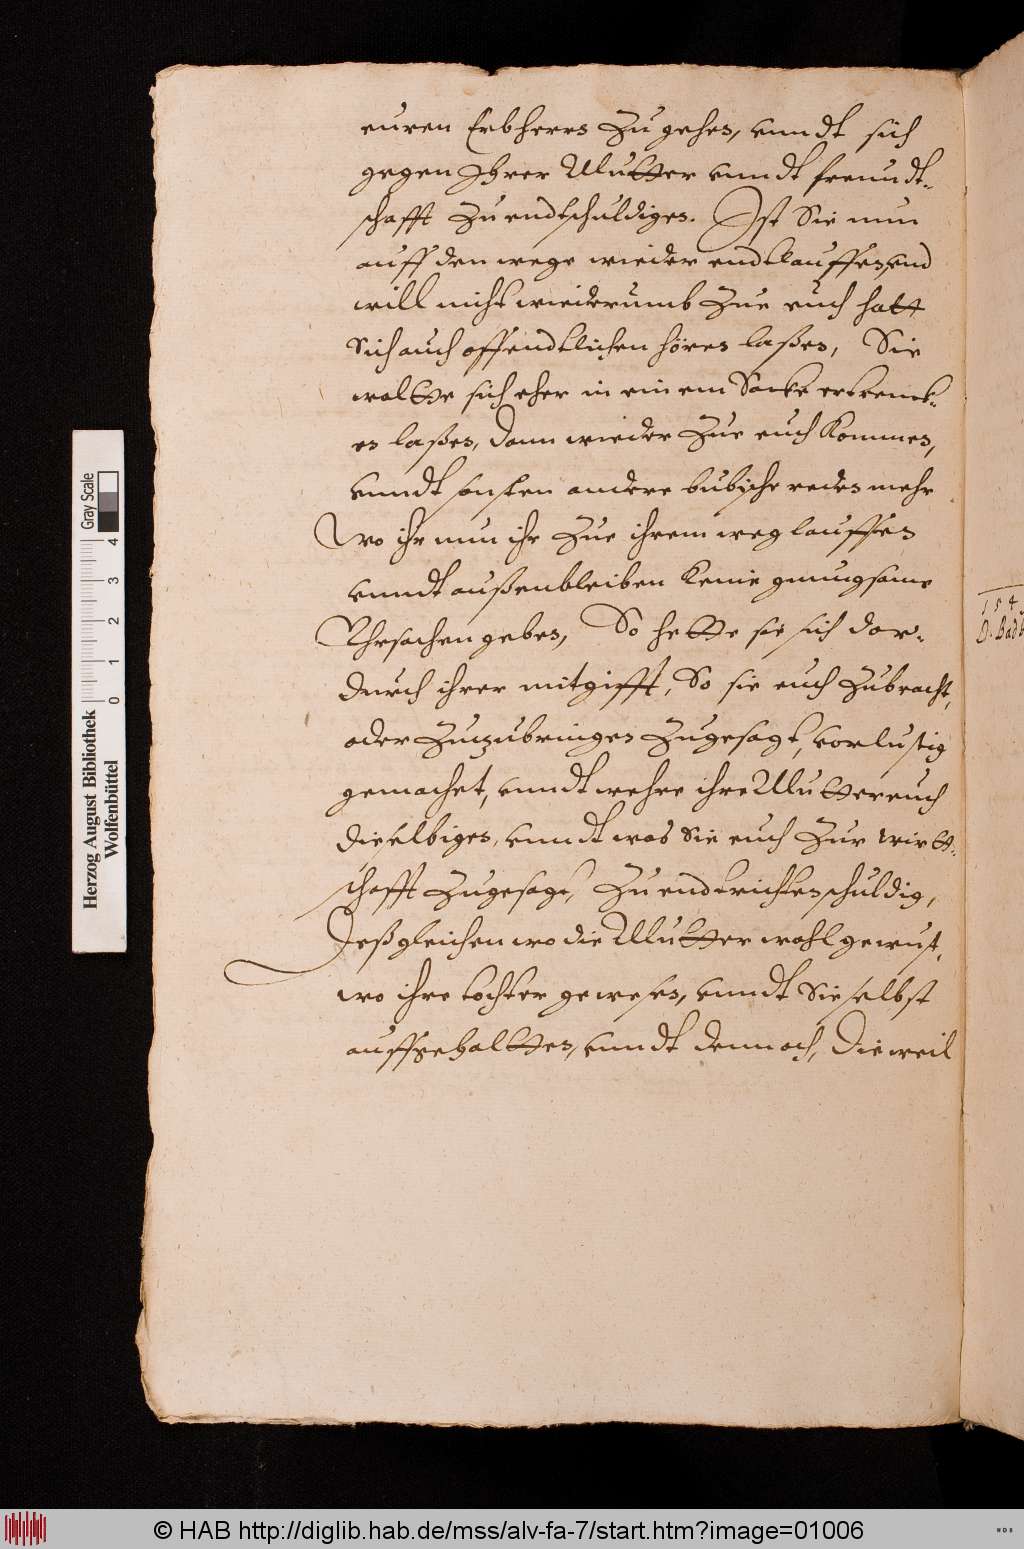 euren Erbherrn Zu gehen, vnndt sich
gegen Ihrer Mutter vnndt freundt-
schafft Zu endtschuldigen. Ist Sie nun
auff den wege wieder endtlauffen, vnd
will nicht wiederumb Zue euch hatt
Sich auch offendtlichen hören laßen, Sie
wolte sich eher in einem Sacke ertrenck-
en laßen, dann wieder Zue euch Kommen,
vnndt sonsten andere bubsche reden mehr
Wo ihr nun ihr Zue ihrem weglauffen
vnndt außenbleiben Keine gnungsame
Vhrsachen geben, So hette sie sich dar-
durch ihrer mitgifft, So sie euch Zubracht,
oder Zuzubringen Zugesagt, vorlustig
gemachet, vnndt wehre ihre Mutter euch
dieselbigen, vnndt was Sie euch Zur wirtt-
schafft Zugesagt, Zu endtrichten schuldig,
Deßgleichen wo die Mutter wohl gewust,
wo ihre tochter gewesen, vnndt Sie selbst
auffgehalten, vnndt dennoch, Dieweil
154
D. Bad
Gray Scale
0 1 2 3 4
Herzog August Bibliothek
Wolfenbüttel
© HAB http://diglib.hab.de/mss/alv-fa-7/start.htm?image=01006